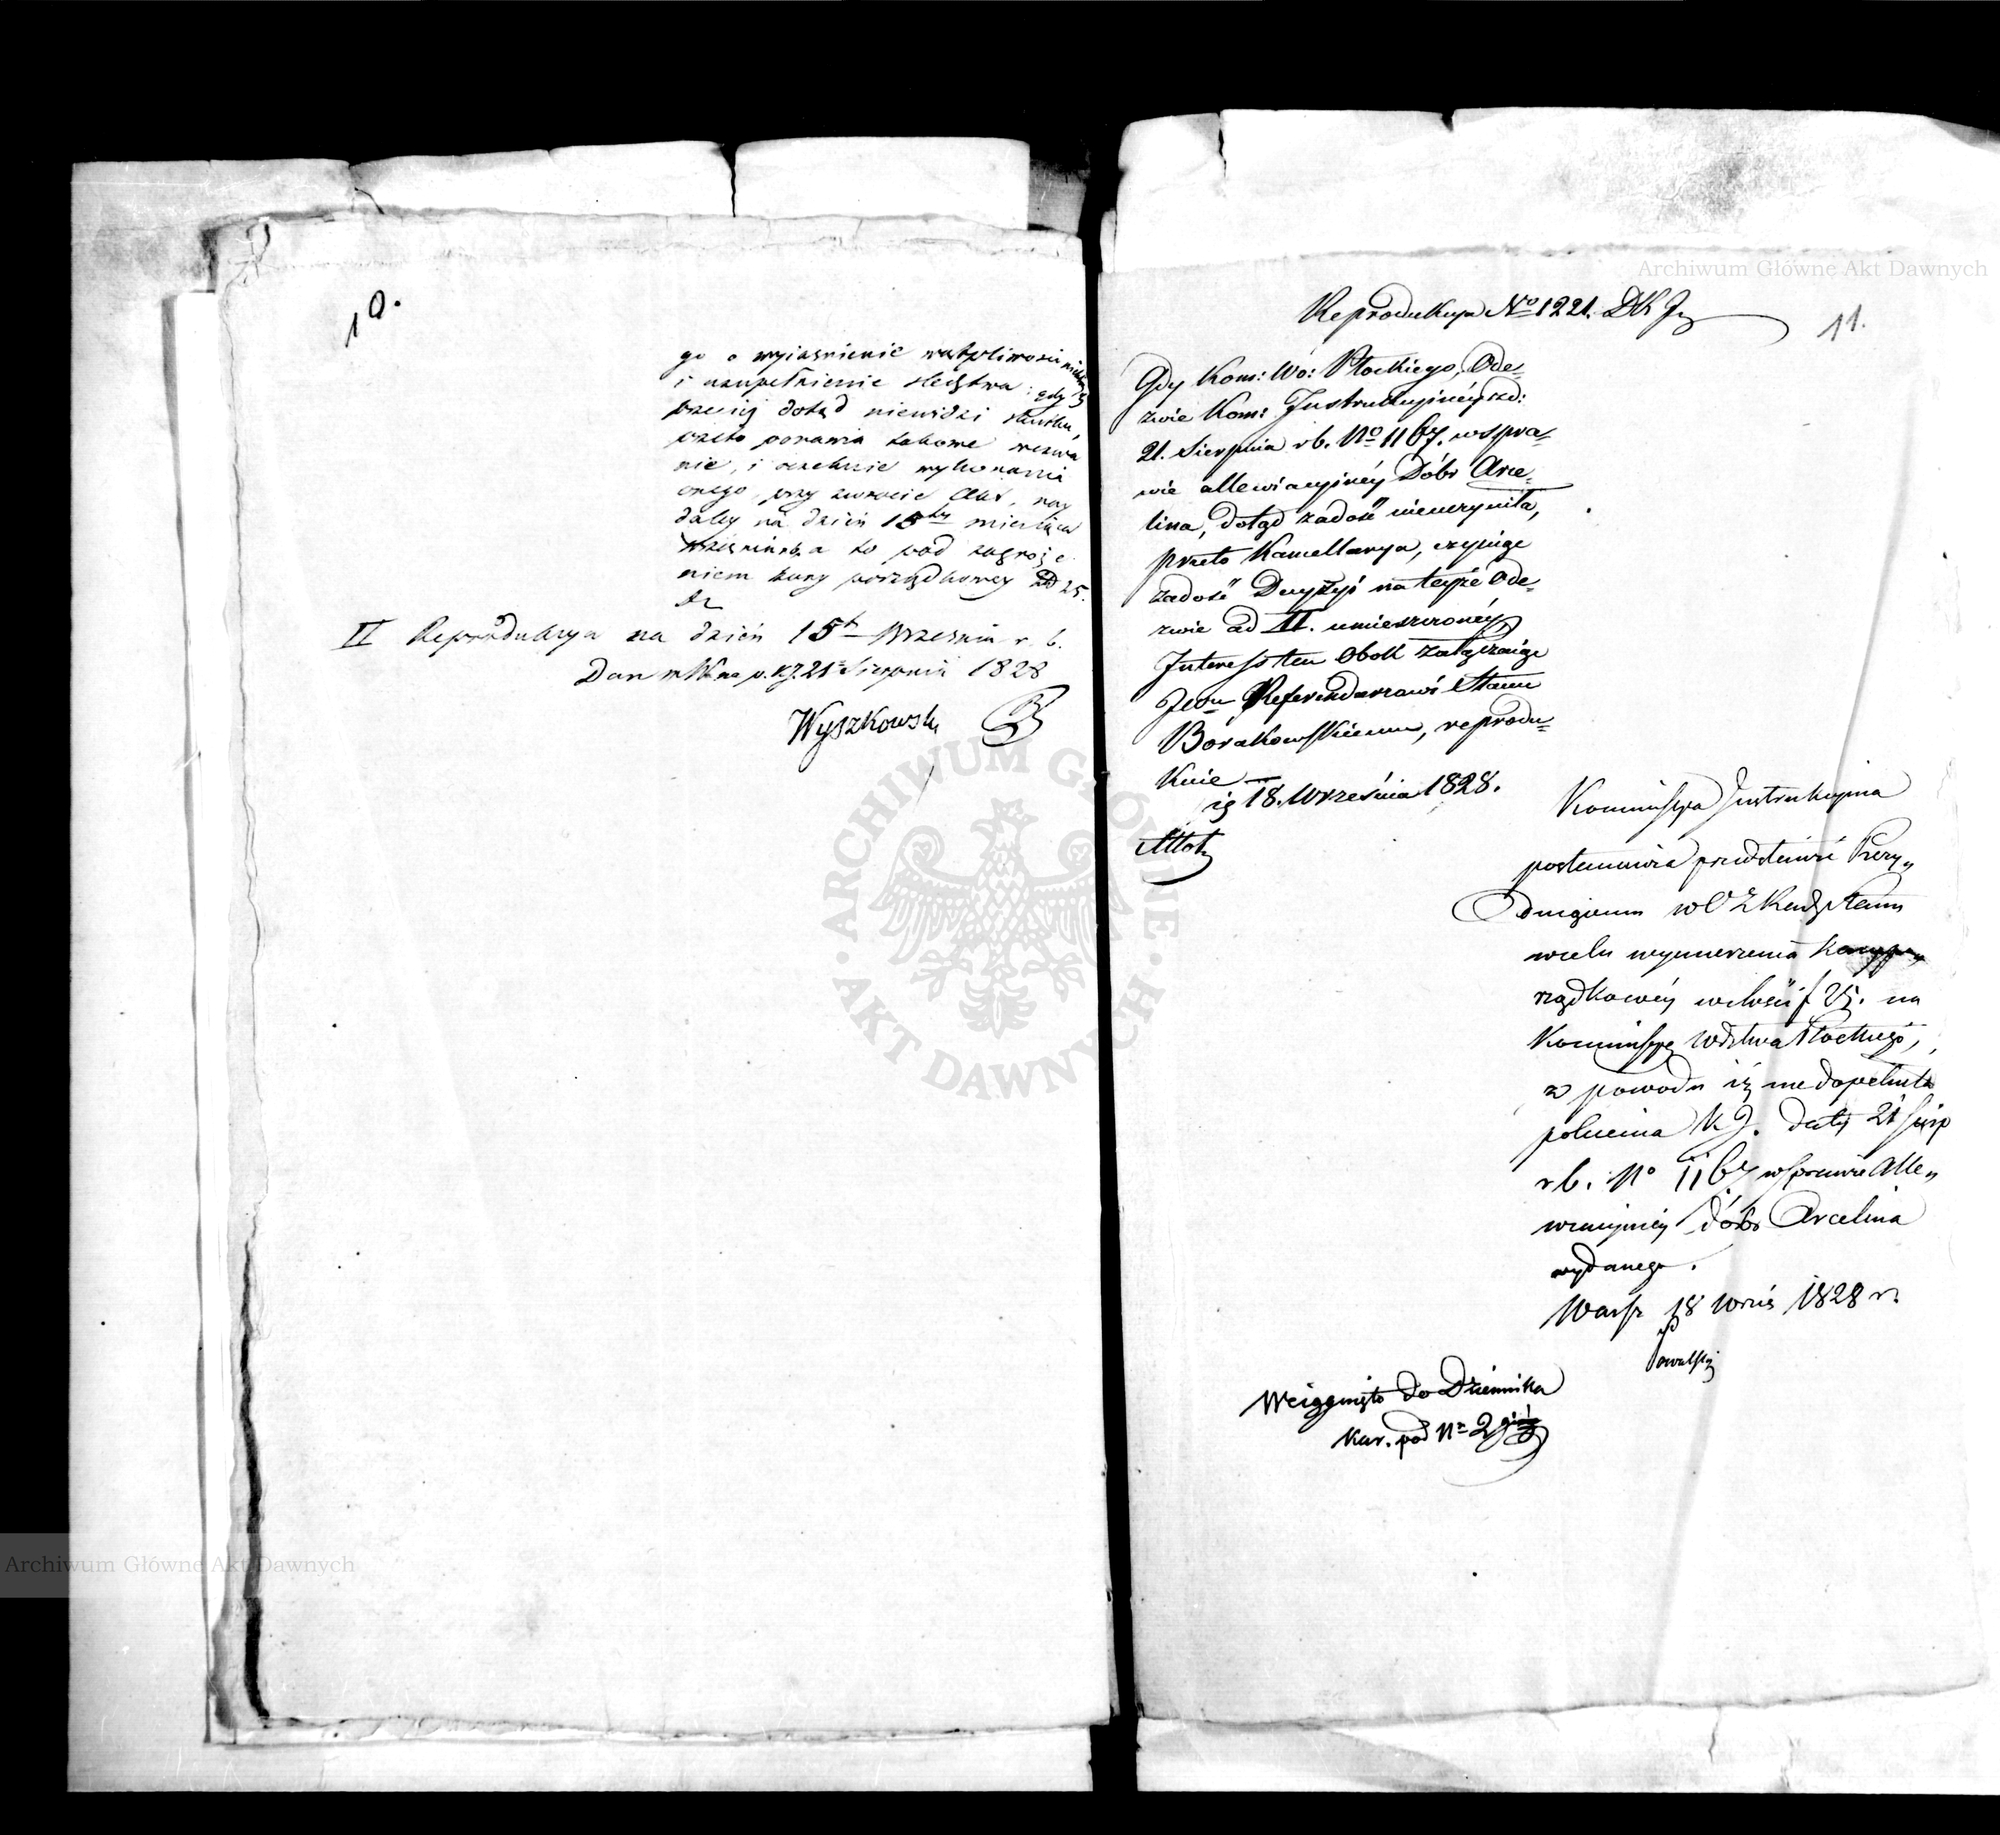 10.
go o wyiaśnienie wątpliwości
i uzupełnienie śledztwa; gdy
dotąd niewidzi skutku,
przeto ponawia takowe wezwa
nie, i oczekuie wykonania
onego, przy zwrocie Akt, nay
daley na dzień 15ty miesiąca
Września rb. a to pod zagroże
niem kary porządkowey zł 25.
II Reprodukcya na dzień 15t Września r. b.
Dan w Wne p. KJ. 21 Sierpnia 1828
Wyszkowski
Archiwum Główne Akt Dawnych
Reprodukcya No 1221. DKJ
11.
Gdy Kom: Wo: Płockiego, Ode=
zwie Kom: Instrukcyinéy zd:
21. Sierpnia rb. No 1167. w spra=
wie allewiacyinéy Dóbr Arce=
lina, dotąd zadość nieuczyniła,
przeto Kancellarya, czyniąc
zadość Decyzyi na teyże Ode=
zwie ad II. umieszczonéy
Interess ten obok załączaiąc
JWu Referendarzowi Stanu
Borakowskiemu, reprodu=
kuie
18. Września 1828.
Kommissya Instrukcyina
postanawia przedstawić Prezy„
duiącemu w Stanu
wcelu wymierzenia kary po„
rządkowéy w ilości f 25. na
Kommissyę Wdztwa Płockiego,
z powodu iż niedopełniła
polecenia K J. daty 21 Sierp
rb. No 1167 w sprawie Alle„
wiacyinéy dóbr Arcelina
wydanego.
Warsz 18 Wrześ 1828 r.
Wciągnięto do Dziennika
Kar. pod No 2
ARCHIWUM GŁÓWNE AKT DAWNYCH
Archiwum Główne Akt Dawnych